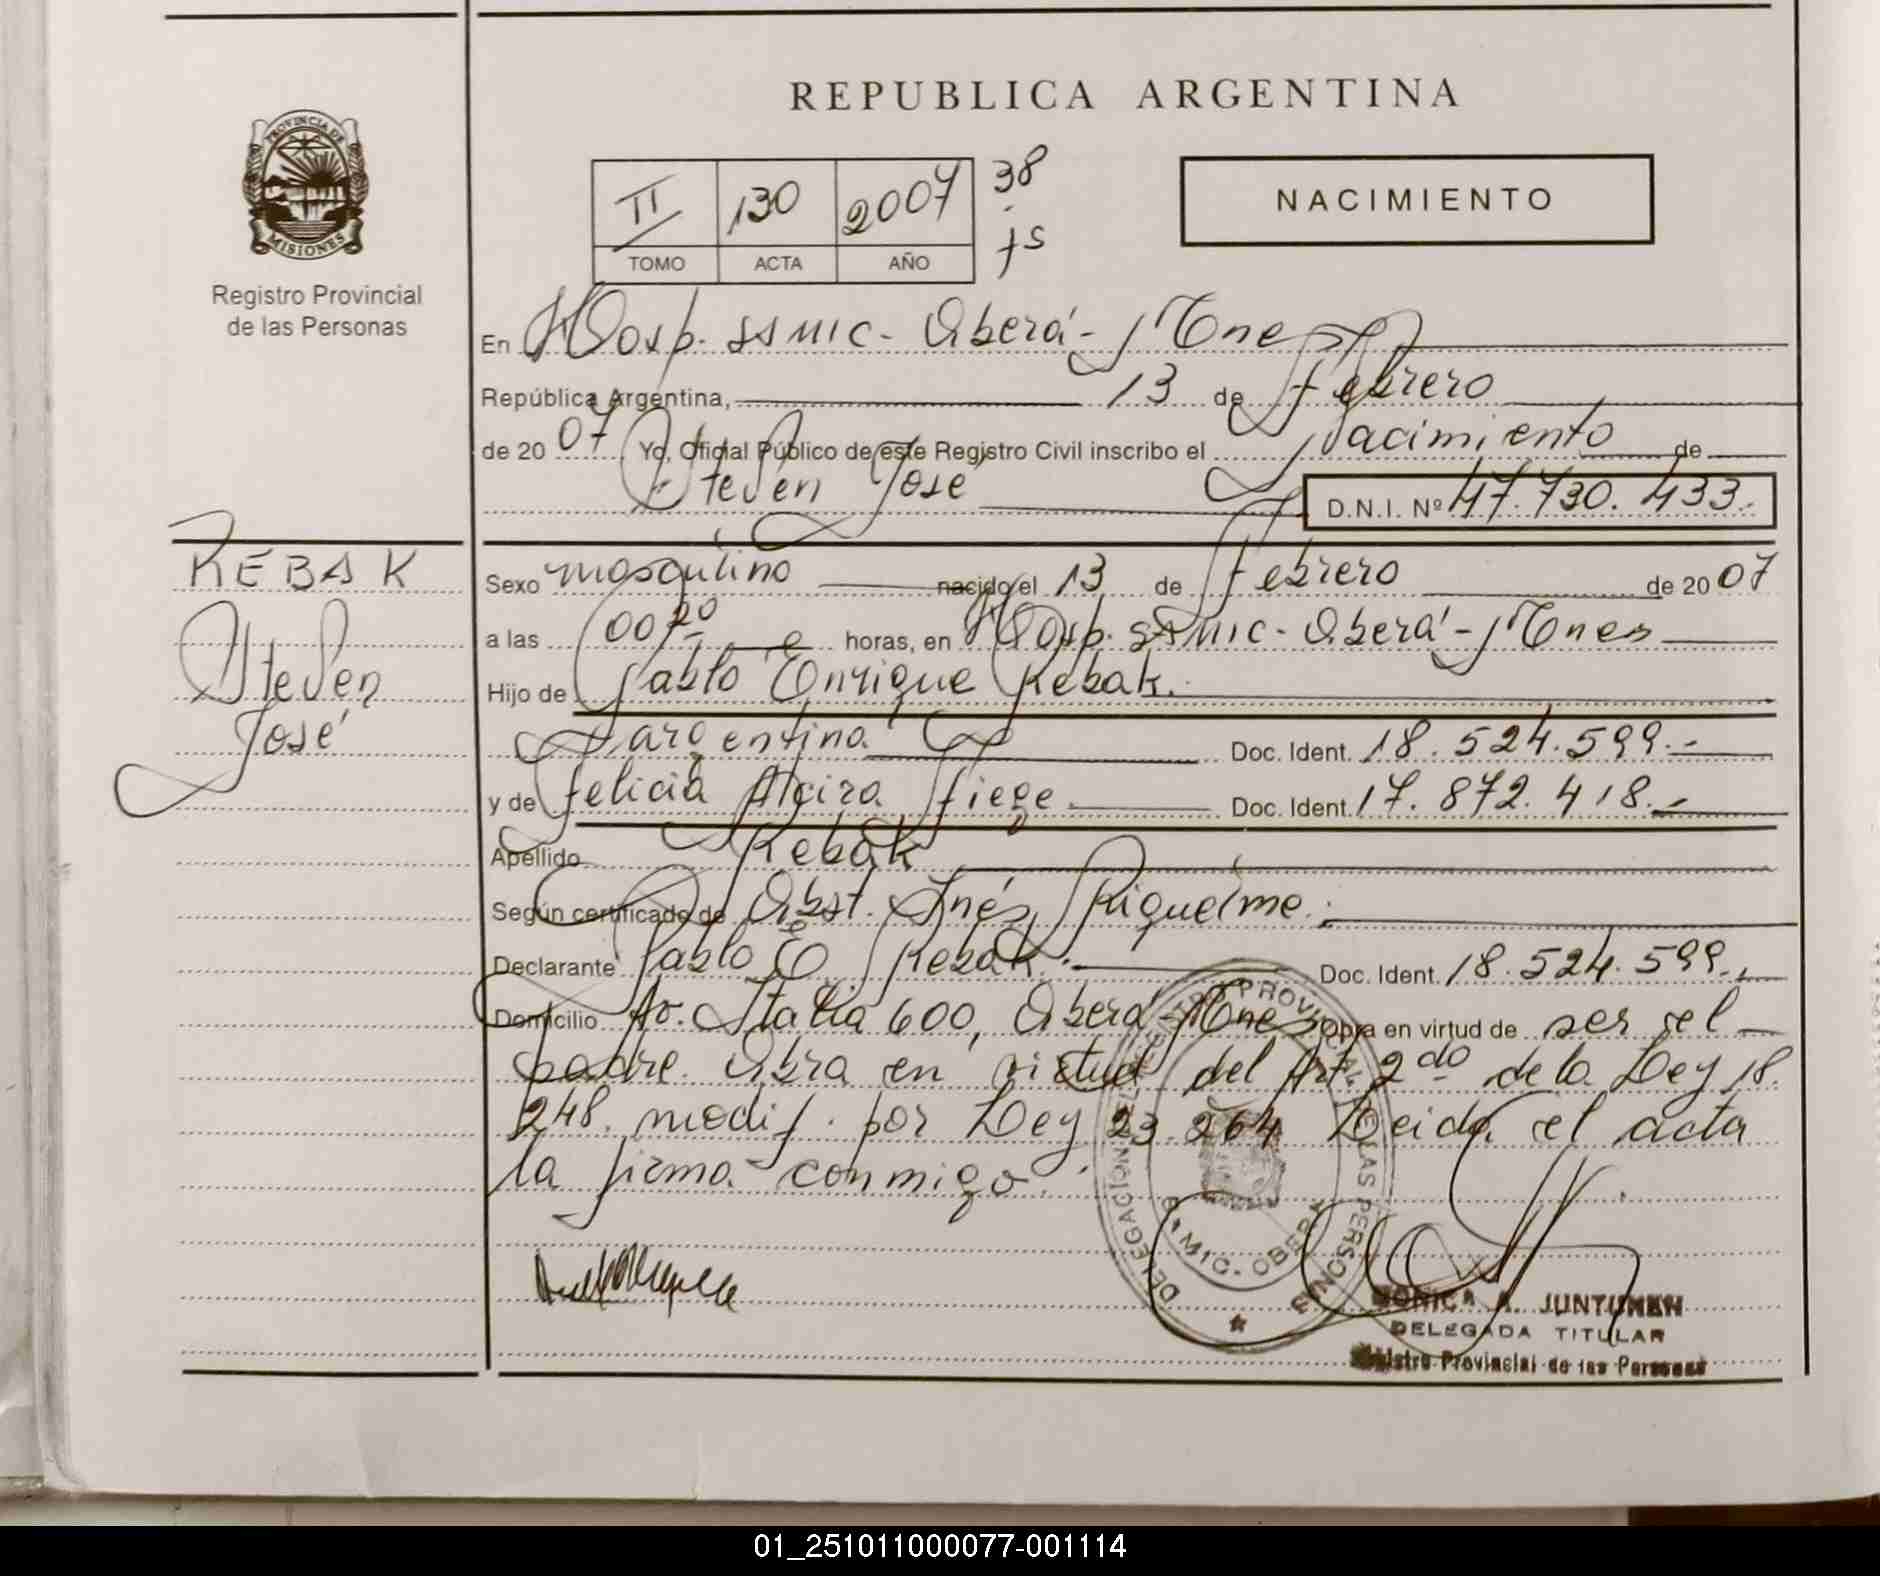 REPUBLICA ARGENTINA
PROVINCIA DE
MISIONES
Registro Provincial
de las Personas
II 130 2007
TOMO ACTA AÑO
38
NACIMIENTO
En Hosp. SAMIC - Oberá - Mnes
República Argentina, 13 de Febrero
de 20 07 Yo, Oficial Público de este Registro Civil inscribo el Nacimiento de
Steven José
D.N.I. Nº 47.730.433.
REBAK
Steven
José
Sexo masculino nacido el 13 de Febrero de 20 07
a las 00 20 horas, en Hosp. SAMIC - Oberá - Mnes
Hijo de Pablo Enrique Rebak.
argentino Doc. Ident. 18.524.599.-
y de Felicia Alcira Fiege. Doc. Ident. 17.872.418.-
Apellido Rebak
Según certificado de Obst. Inés Riquelme.
Declarante Pablo E. Rebak. Doc. Ident. 18.524.599.-
Domicilio Av. Italia 600, Oberá - Mnes Obra en virtud de ser el
padre. Obra en virtud del Art 2do de la Ley 18.
248. modif. por Ley 23.264. Leida el acta
la firma conmigo.
DELEGACIÓN REGISTRO PROVINCIAL DE LAS PERSONAS
MIC. OBERÁ
MONICA A. JUNTUNEN
DELEGADA TITULAR
Registro Provincial de las Personas
01_251011000077-001114